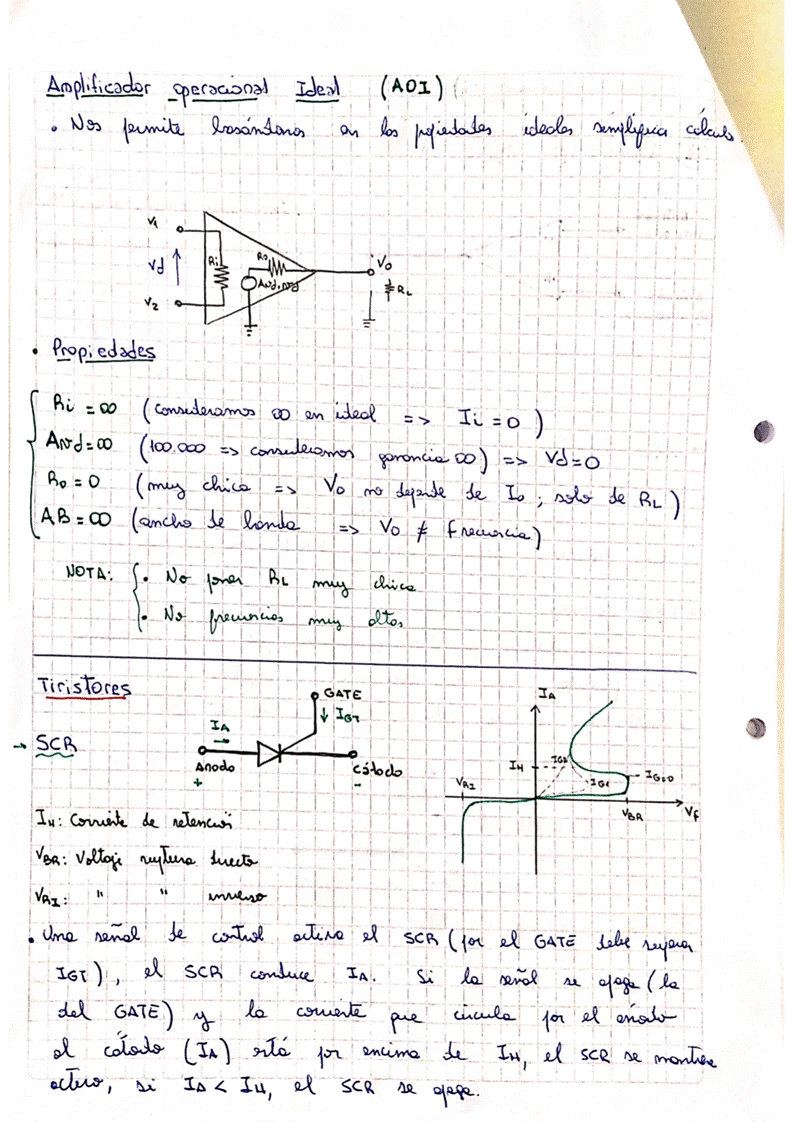 Amplificador operacional Ideal (AOI)
• Nos permite basándonos en las propiedades ideales simplificar cálculo.
V1
Vd
V2
Ri
Ro
Avd.vd
Vo
RL
• Propiedades
Ri = ∞ (consideramos ∞ en ideal => Ii = 0)
Avd = ∞ (100.000 => consideramos ganancia ∞) => Vd = 0
Ro = 0 (muy chica => Vo no depende de Io ; solo de RL)
AB = ∞ (ancho de banda => Vo ≠ frecuencia)
NOTA: • No poner RL muy chica
• No frecuencias muy altas
Tiristores
→ SCR
IA
Anodo
+
GATE
↓ IGT
Cátodo
-
IA
IH
IG2
IG1
IG=0
VRI
VBR
Vf
IH: Corriente de retención
VBR: Voltaje ruptura directo
VRI: " " inverso
• Una señal de control activa el SCR (por el GATE debe superar
IGT), el SCR conduce IA. Si la señal se apaga (la
del GATE) y la corriente que circula por el anodo
al cátodo (IA) está por encima de IH, el SCR se mantiene
activo, si IA < IH, el SCR se apaga.